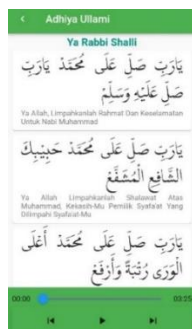 Adhiya Ullami
Ya Rabbi Shalli
يَارَبِّ صَلِّ عَلَى مُحَمَّدْ يَارَبِّ
صَلِّ عَلَيْهِ وَسَلِّمْ
Ya Allah, Limpahkanlah Rahmat Dan Keselamatan
Untuk Nabi Muhammad
يَارَبِّ صَلِّ عَلَى مُحَمَّدْ حَبِيْبِكَ
الشَّافِعِ الْمُشَفَّعْ
Ya Allah Limpahkanlah Shalawat Atas
Muhammad, Kekasih-Mu Pemilik Syafa'at Yang
Dilimpahi Syafa'at-Mu
يَارَبِّ صَلِّ عَلَى مُحَمَّدْ أَعْلَى
الْوَرَى رُتْبَةً وَأَرْفَعْ
00:00
03:25